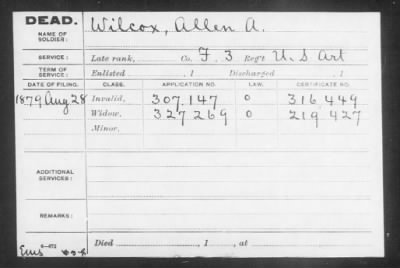 DEAD.
NAME OF SOLDIER: Wilcox, Allen A.
SERVICE: Late rank, Co. F. 3 Reg't U.S Art
TERM OF SERVICE: Enlisted , 1 Discharged , 1
DATE OF FILING. CLASS. APPLICATION NO. LAW. CERTIFICATE NO.
1879 Aug 28 Invalid, 307,147 0 316,449
Widow, 327,269 0 219,427
Minor,
ADDITIONAL SERVICES:
REMARKS:
Died , 1 , at